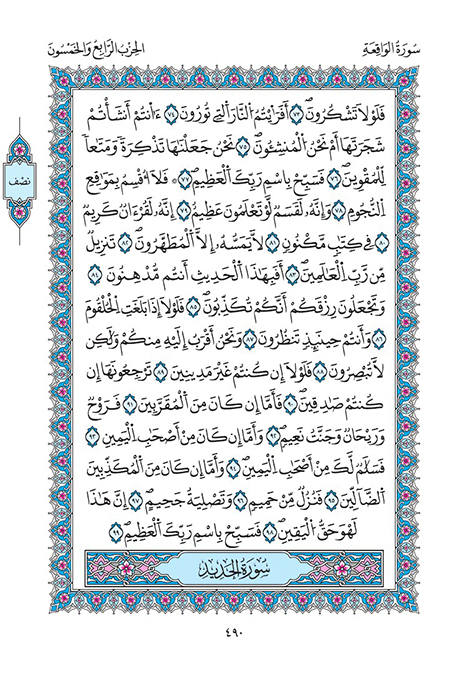 سُورَةُ الْوَاقِعَةِ
الحِزْبُ الرَّابِعُ وَالخَمْسُونَ
نِصْف
فَلَوْلَا تَشْكُرُونَ ٧٣ أَفَرَٰٓيْتُمُ النَّارَ الَّتِي تُورُونَ ٧٤ ءَآنتُمْ أَنشَأْتُمْ
شَجَرَتَهَا أَمْ نَحْنُ الْمُنشِـُٔونَ ٧٥ نَحْنُ جَعَلْنَٰهَا تَذْكِرَةً وَمَتَٰعاً
لِّلْمُقْوِينَ ٧٦ فَسَبِّحْ بِاسْمِ رَبِّكَ الْعَظِيمِ ٧٧ فَلَا أُقْسِمُ بِمَوَٰقِعِ
النُّجُومِ ٧٨ وَإِنَّهُۥ لَقَسَمٌ لَّوْ تَعْلَمُونَ عَظِيمٌ ٧٩ إِنَّهُۥ لَقُرْءَانٌ كَرِيمٌ
٨٠ فِي كِتَٰبٍ مَّكْنُونٍ ٨١ لَّا يَمَسُّهُۥ إِلَّا الْمُطَهَّرُونَ ٨٢ تَنزِيلٌ
مِّن رَّبِّ الْعَٰلَمِينَ ٨٣ أَفَبِهَٰذَا الْحَدِيثِ أَنتُم مُّدْهِنُونَ ٨٤
وَتَجْعَلُونَ رِزْقَكُمْ أَنَّكُمْ تُكَذِّبُونَ ٨٥ فَلَوْلَا إِذَا بَلَغَتِ الْحُلْقُومَ
٨٦ وَأَنتُمْ حِينَئِذٍ تَنظُرُونَ ٨٧ وَنَحْنُ أَقْرَبُ إِلَيْهِ مِنكُمْ وَلَٰكِن
لَّا تُبْصِرُونَ ٨٨ فَلَوْلَا إِن كُنتُمْ غَيْرَ مَدِينِينَ ٨٩ تَرْجِعُونَهَا إِن
كُنتُمْ صَٰدِقِينَ ٩٠ فَأَمَّا إِن كَانَ مِنَ الْمُقَرَّبِينَ ٩١ فَرَوْحٌ
وَرَيْحَانٌ وَجَنَّتُ نَعِيمٍ ٩٢ وَأَمَّا إِن كَانَ مِنْ أَصْحَٰبِ الْيَمِينِ ٩٣
فَسَلَٰمٌ لَّكَ مِنْ أَصْحَٰبِ الْيَمِينِ ٩٤ وَأَمَّا إِن كَانَ مِنَ الْمُكَذِّبِينَ
الضَّآلِّينَ ٩٥ فَنُزُلٌ مِّنْ حَمِيمٍ ٩٦ وَتَصْلِيَةُ جَحِيمٍ ٩٧ إِنَّ هَٰذَا
لَهُوَ حَقُّ الْيَقِينِ ٩٨ فَسَبِّحْ بِاسْمِ رَبِّكَ الْعَظِيمِ ٩٩
سُورَةُ الحَدِيدِ
٤٩٠